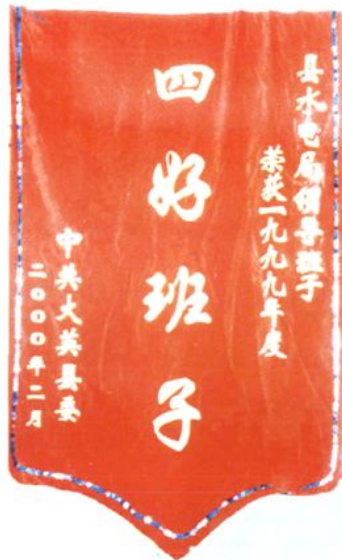 县水电局领导班子
荣获一九九九年度
四好班子
中共大英县委
二〇〇〇年二月